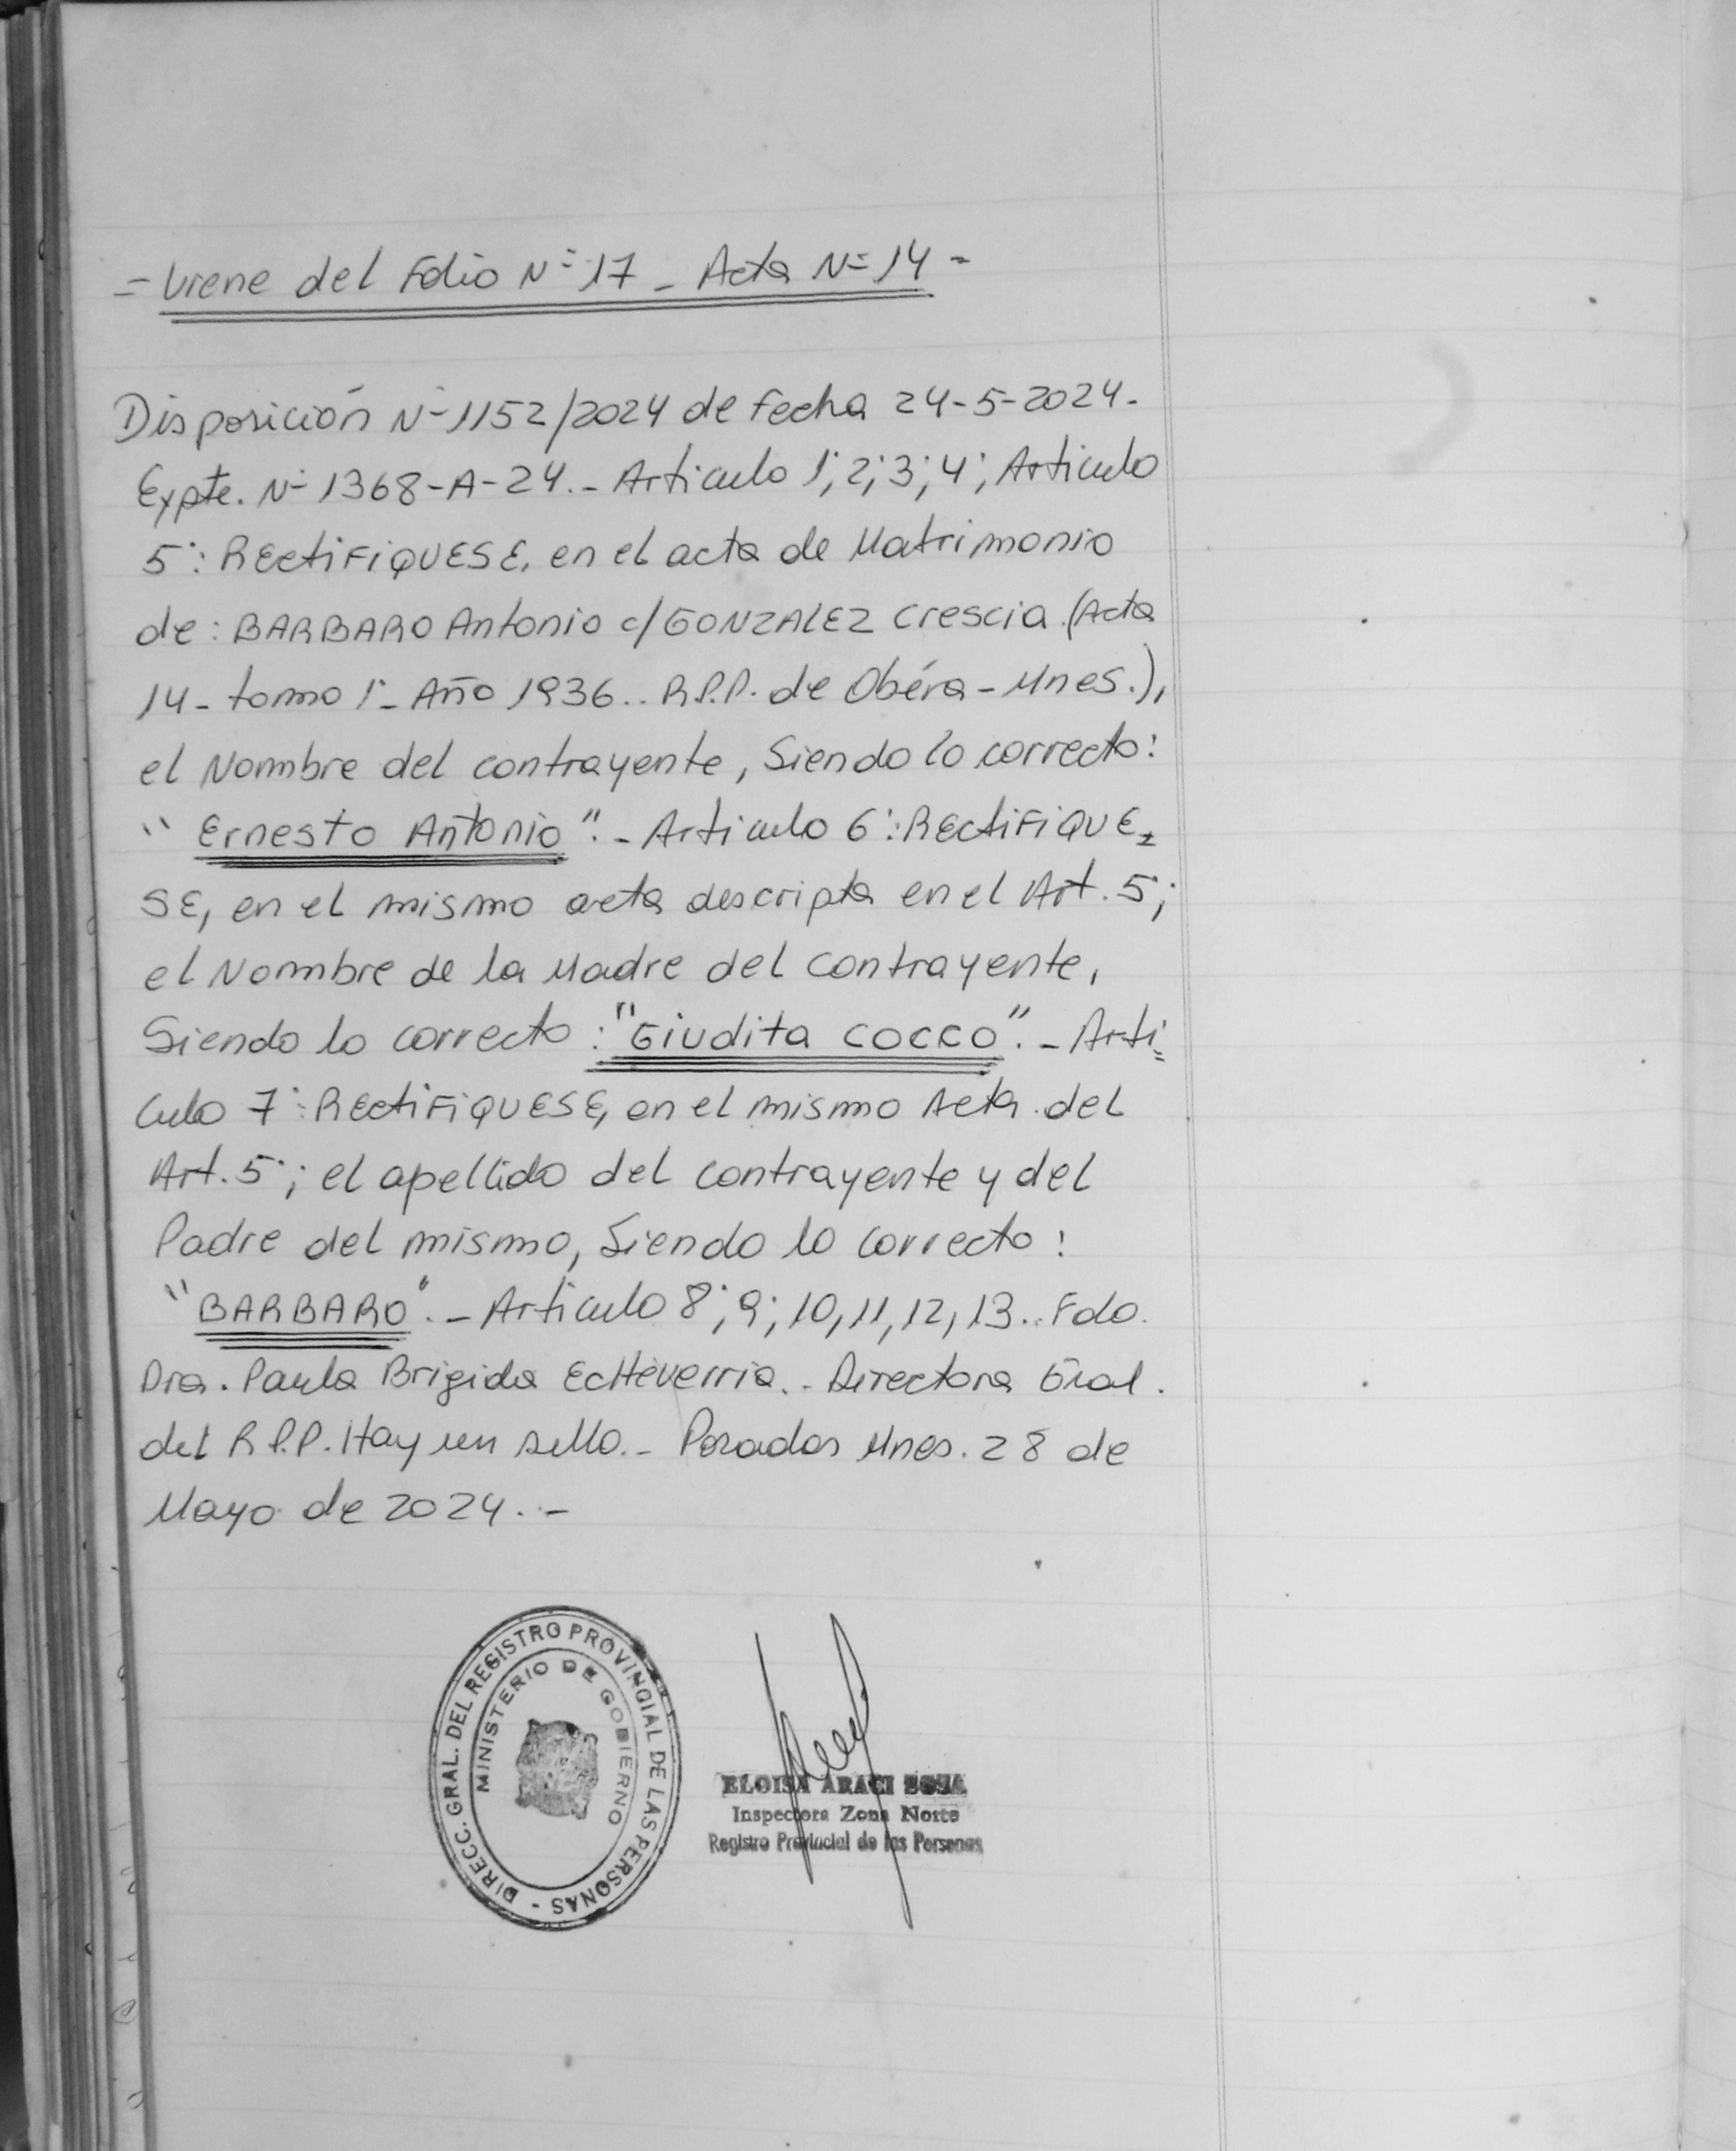 = Viene del Folio Nº 17 - Acta Nº 14 -
Disposición Nº 1152/2024 de fecha 24-5-2024.
Expte. Nº 1368-A-24.- Articulo 1º; 2º; 3º; 4º; Articulo
5º: RECtiFiQUESE, en el acta de Matrimonio
de: BARBARO Antonio c/ GONZALEZ Crescia. (Acta
14- tomo 1º- Año 1936.. R.P.P. de Obéra - Mnes.),
el Nombre del contrayente, Siendo lo correcto:
"Ernesto Antonio".- Articulo 6º: RECtiFiQUE=
SE, en el mismo acta descripta en el Art. 5º;
el Nombre de la Madre del contrayente,
Siendo lo correcto: "Giudita COCCO".- Arti=
culo 7º: RECtiFiQUESE, en el mismo Acta del
Art. 5º; el apellido del contrayente y del
Padre del mismo, Siendo lo correcto:
"BARBARO".- Articulo 8º; 9º; 10, 11, 12, 13.. Fdo.
Dra. Paula Brigida EcHeverria.- Directora Gral.
del R.P.P. Hay un sello.- Posadas Mnes. 28 de
Mayo de 2024.-
DIRECC. GRAL. DEL REGISTRO PROVINCIAL DE LAS PERSONAS -
MINISTERIO DE GOBIERNO
ELOISA ARACI
Inspectora Zona Norte
Registro Provincial de las Personas